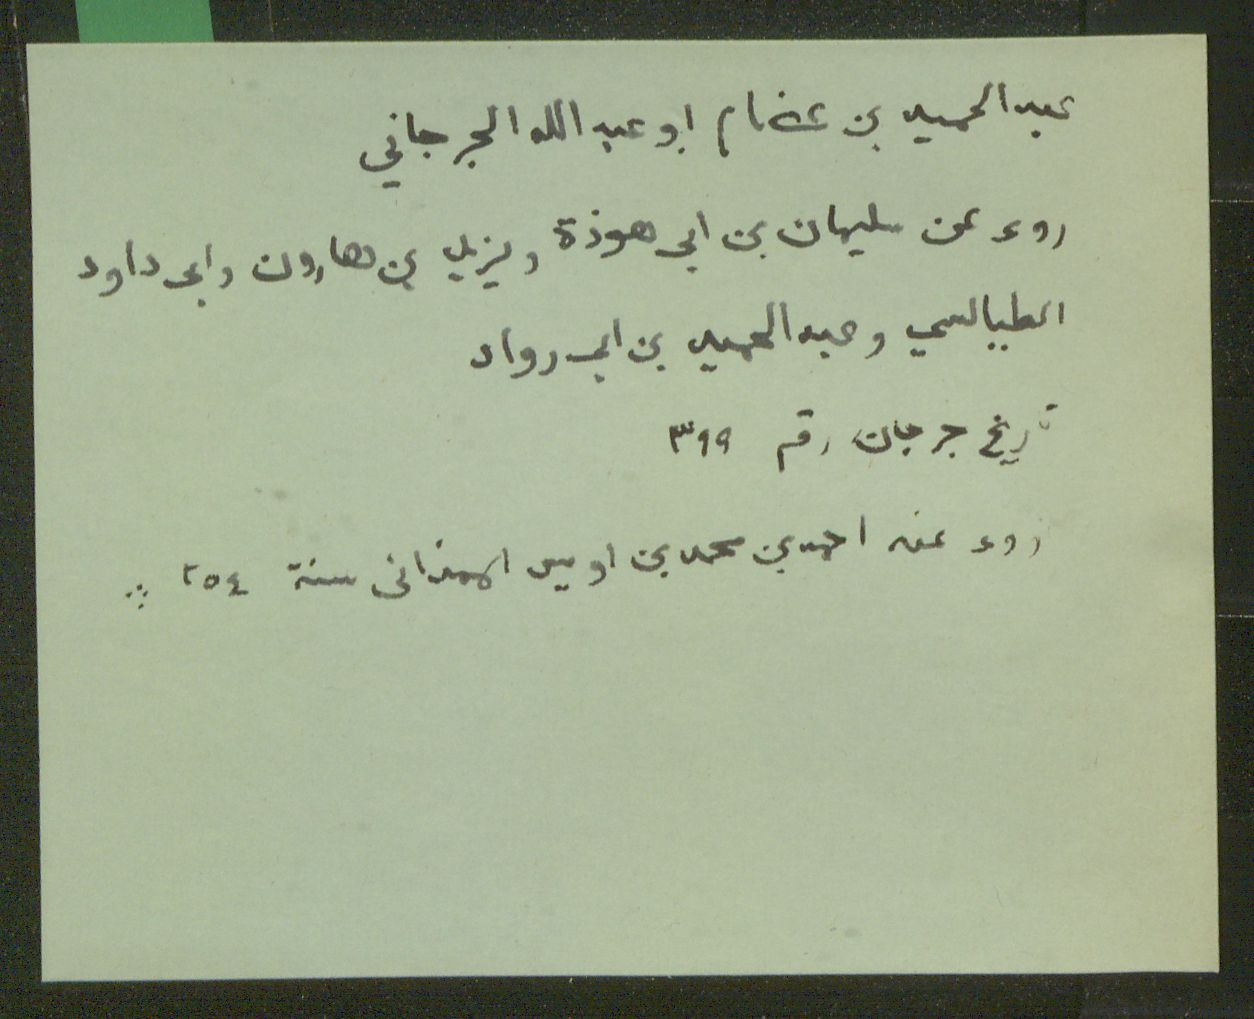 عبد الحميد بن عصام ابو عبد الله الجرجاني
روى عن سليمان بن ابي هوذة ويزيد بن هارون وابى داود
الطيالسي وعبد الحميد بن ابي رواد
تاريخ جرجان رقم ٣٩٩
روى عنه احمد بن محمد بن اويس الهمذانى سنة ٢٥٤